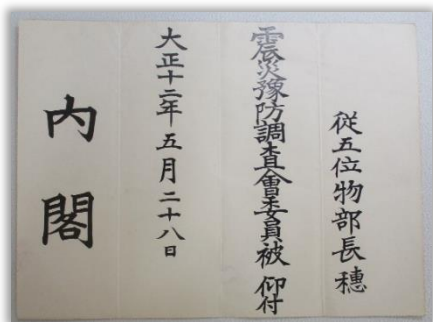 従五位物部長穗
震災豫防調査會委員被 仰付
大正十二年五月二十八日
内閣